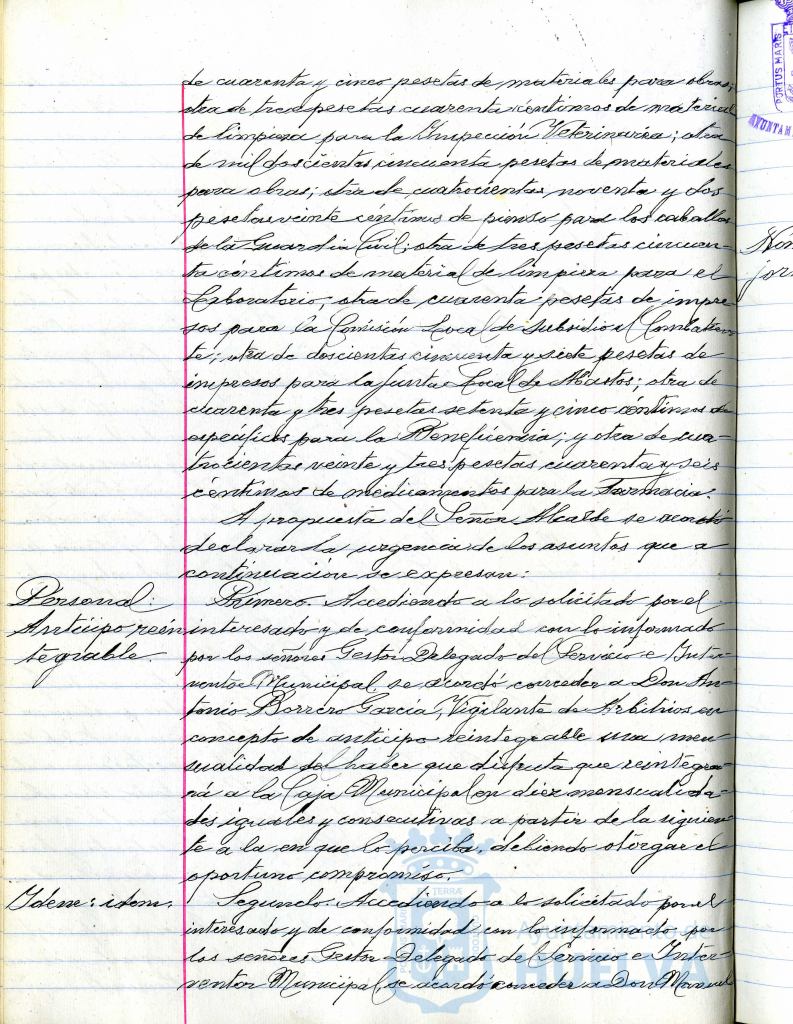 de cuarenta y cinco pesetas de materiales para obras;
otra de trece pesetas cuarenta céntimos de material
de limpieza para la Inspección Veterinaria; otra
de mil doscientas cincuenta pesetas de materiales
para obras; otra de cuatrocientas noventa y dos
pesetas veinte céntimos de pienso para los caballos
de la Guardia Civil; otra de tres pesetas cincuen-
ta céntimos de material de limpieza para el
Laboratorio; otra de cuarenta pesetas de impre-
sos para la Comisión Local de Subsidio al Combatien-
te; otra de doscientas cincuenta y siete pesetas de
impresos para la Junta Local de Abastos; otra de
cuarenta y tres pesetas setenta y cinco céntimos de
específicos para la Beneficencia; y otra de cua-
trocientas veinte y tres pesetas cuarenta y seis
céntimos de medicamentos para la Farmacia.
A propuesta del Señor Alcalde se acordó
declarar la urgencia de los asuntos que a
continuación se expresan:
Personal:
Anticipo rein
tegrable.
Primero. Accediendo a lo solicitado por el
interesado y de conformidad con lo informado
por los señores Gestor Delegado del Servicio e Inter-
ventor Municipal, se acordó conceder a Don An-
tonio Borrero García, Vigilante de Arbitrios en
concepto de anticipo reintegrable una men-
sualidad del haber que disfruta que reintegra-
rá a la Caja Municipal en diez mensualida-
des iguales y consecutivas a partir de la siguien-
te a la en que lo perciba, debiendo otorgar el
oportuno compromiso.
Idem: idem:
Segundo. Accediendo a lo solicitado por el
interesado y de conformidad con lo informado por
los señores Gestor Delegado del Servicio e Inter-
ventor Municipal, se acordó conceder a Don Manuel
Ayuntamiento de
HUELVA
PORTUS MARIS
AYUNTAM